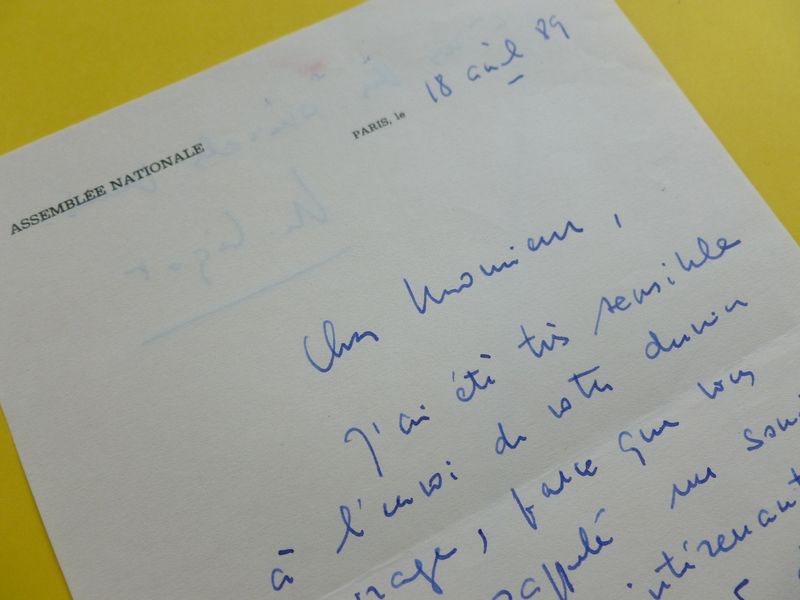 ASSEMBLÉE NATIONALE
PARIS, le 18 avril 89
Cher Monsieur,
J'ai été très sensible
à l'envoi de votre dernier
parce que vous
rappelé un
intéressant